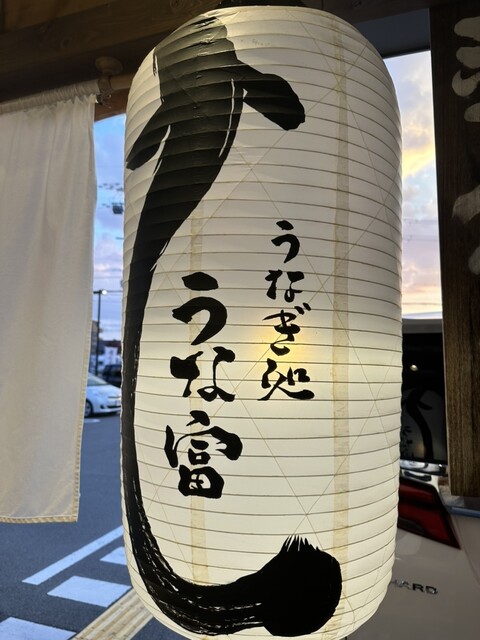 うなぎ処
うな富